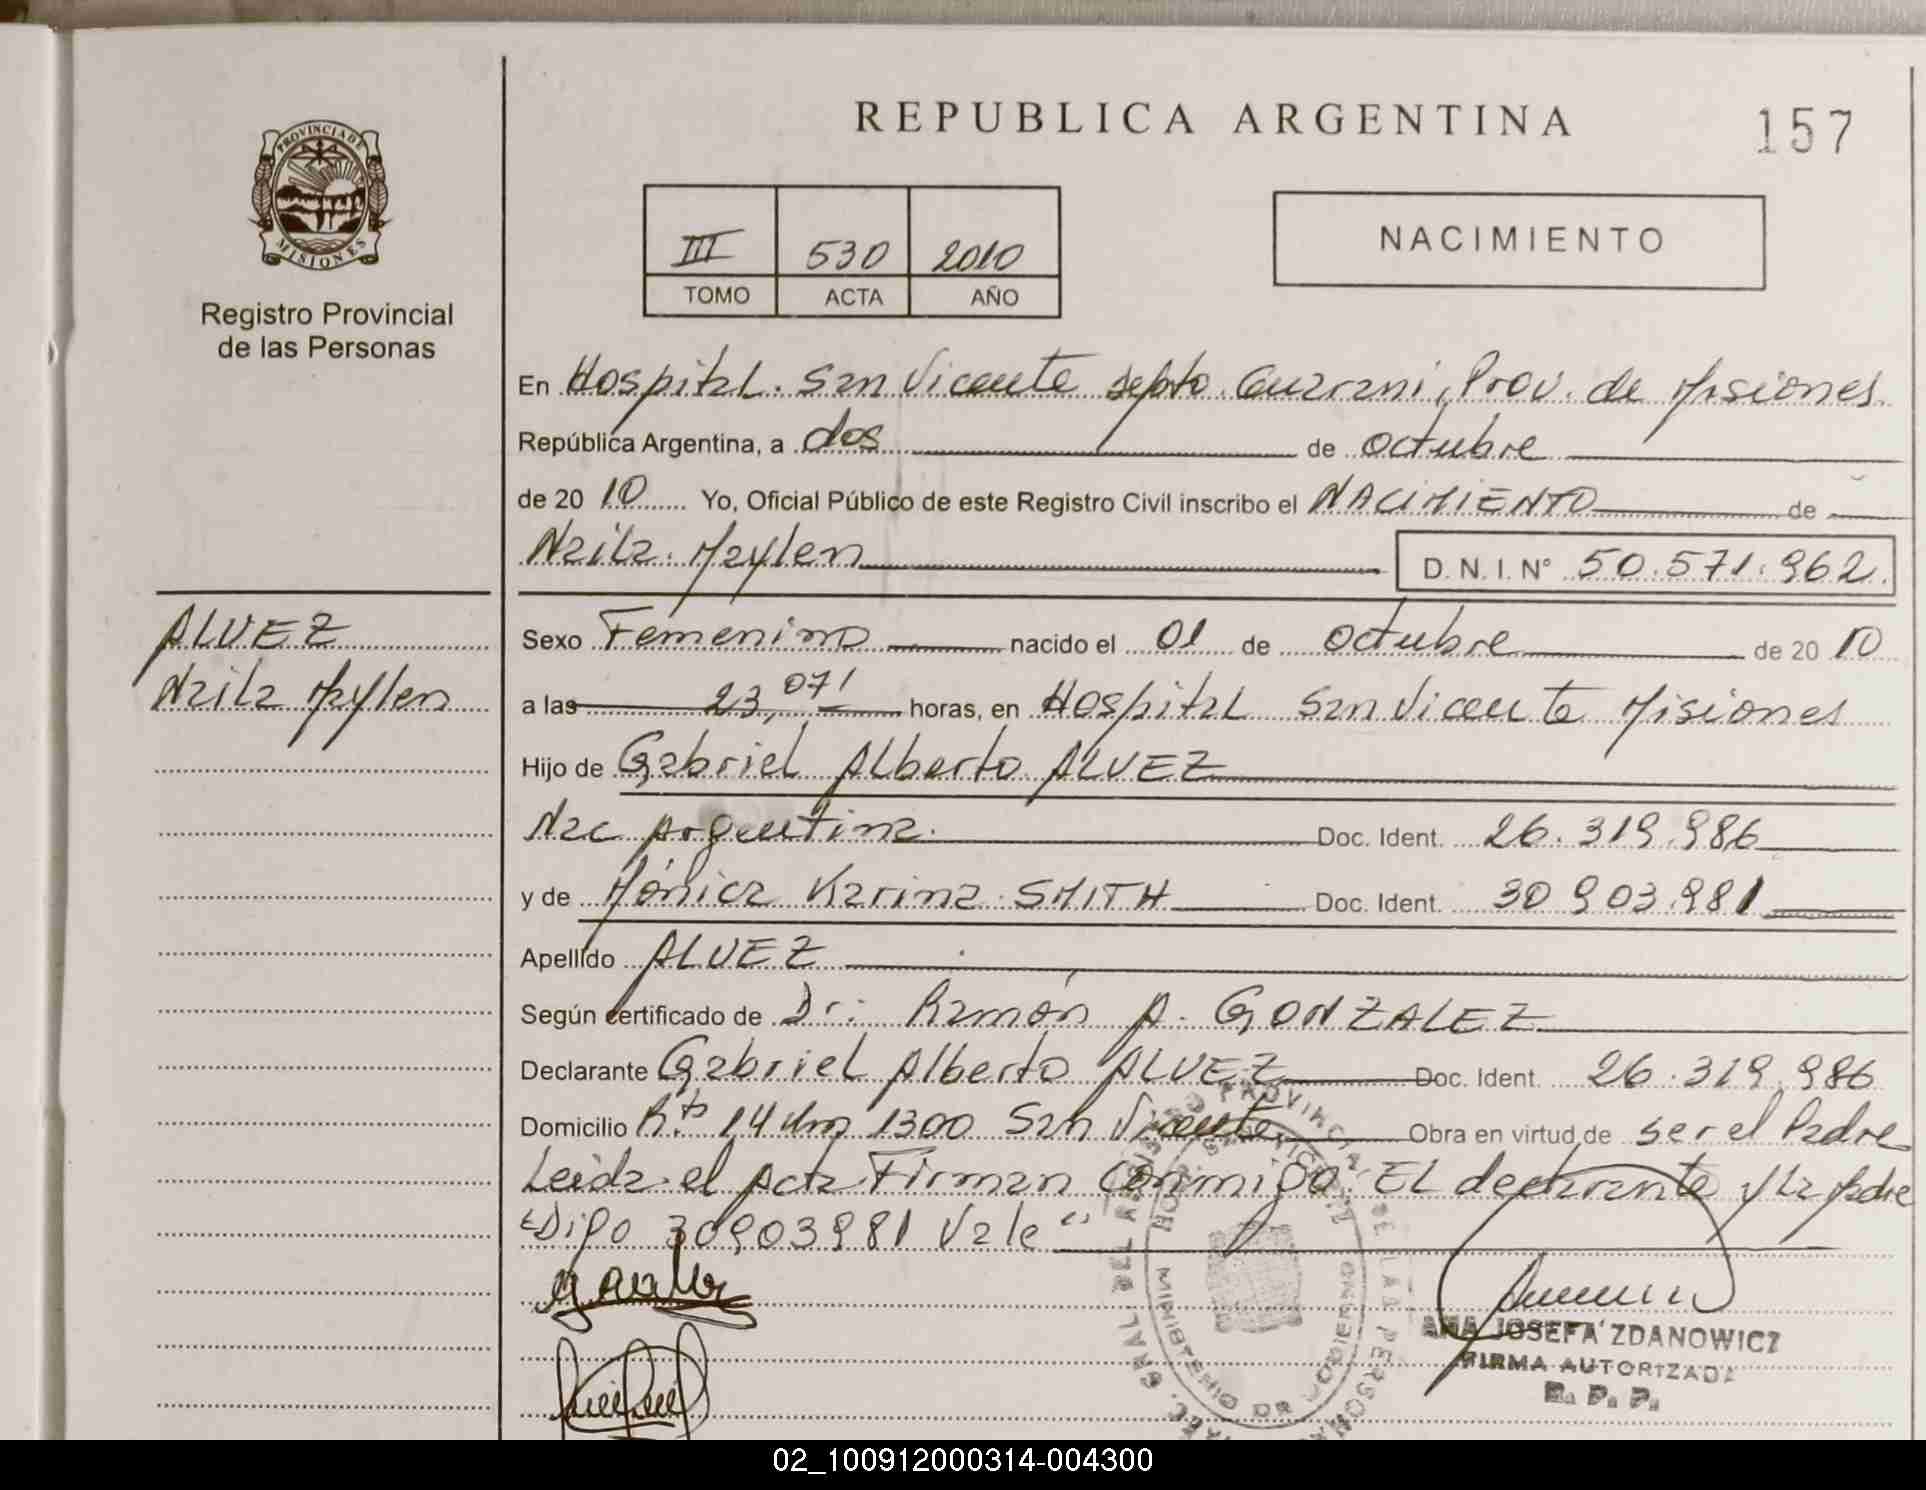 REPUBLICA ARGENTINA
157
PROVINCIA DE
MISIONES
Registro Provincial
de las Personas
III 530 2010
TOMO ACTA AÑO
NACIMIENTO
En Hospital San Vicente depto. Guarani, Prov. de Misiones
República Argentina, a dos de octubre
de 2010 Yo, Oficial Público de este Registro Civil inscribo el NACIMIENTO de
Naila Maylen D.N.I.N° 50.571.962.
ALVEZ
Naila Maylen
Sexo Femenino nacido el 01 de octubre de 2010
a las 23,07 horas, en Hospital San Vicente Misiones
Hijo de Gabriel Alberto ALVEZ
Nac Argentina. Doc. Ident. 26.319.986
y de Mónica Karina SMITH Doc. Ident. 30903.981
Apellido ALVEZ
Según certificado de Dr: Ramón A. GONZALEZ
Declarante Gabriel Alberto ALVEZ Doc. Ident. 26.319.986
Domicilio Rta 14 Km 1300 San Vicente Obra en virtud de ser el Padre
Leida el Acta Firman Conmigo El declarante y la Madre
"Digo 30903981 Vale"
ANA JOSEFA ZDANOWICZ
FIRMA AUTORIZADA
R. P. P.
02_100912000314-004300